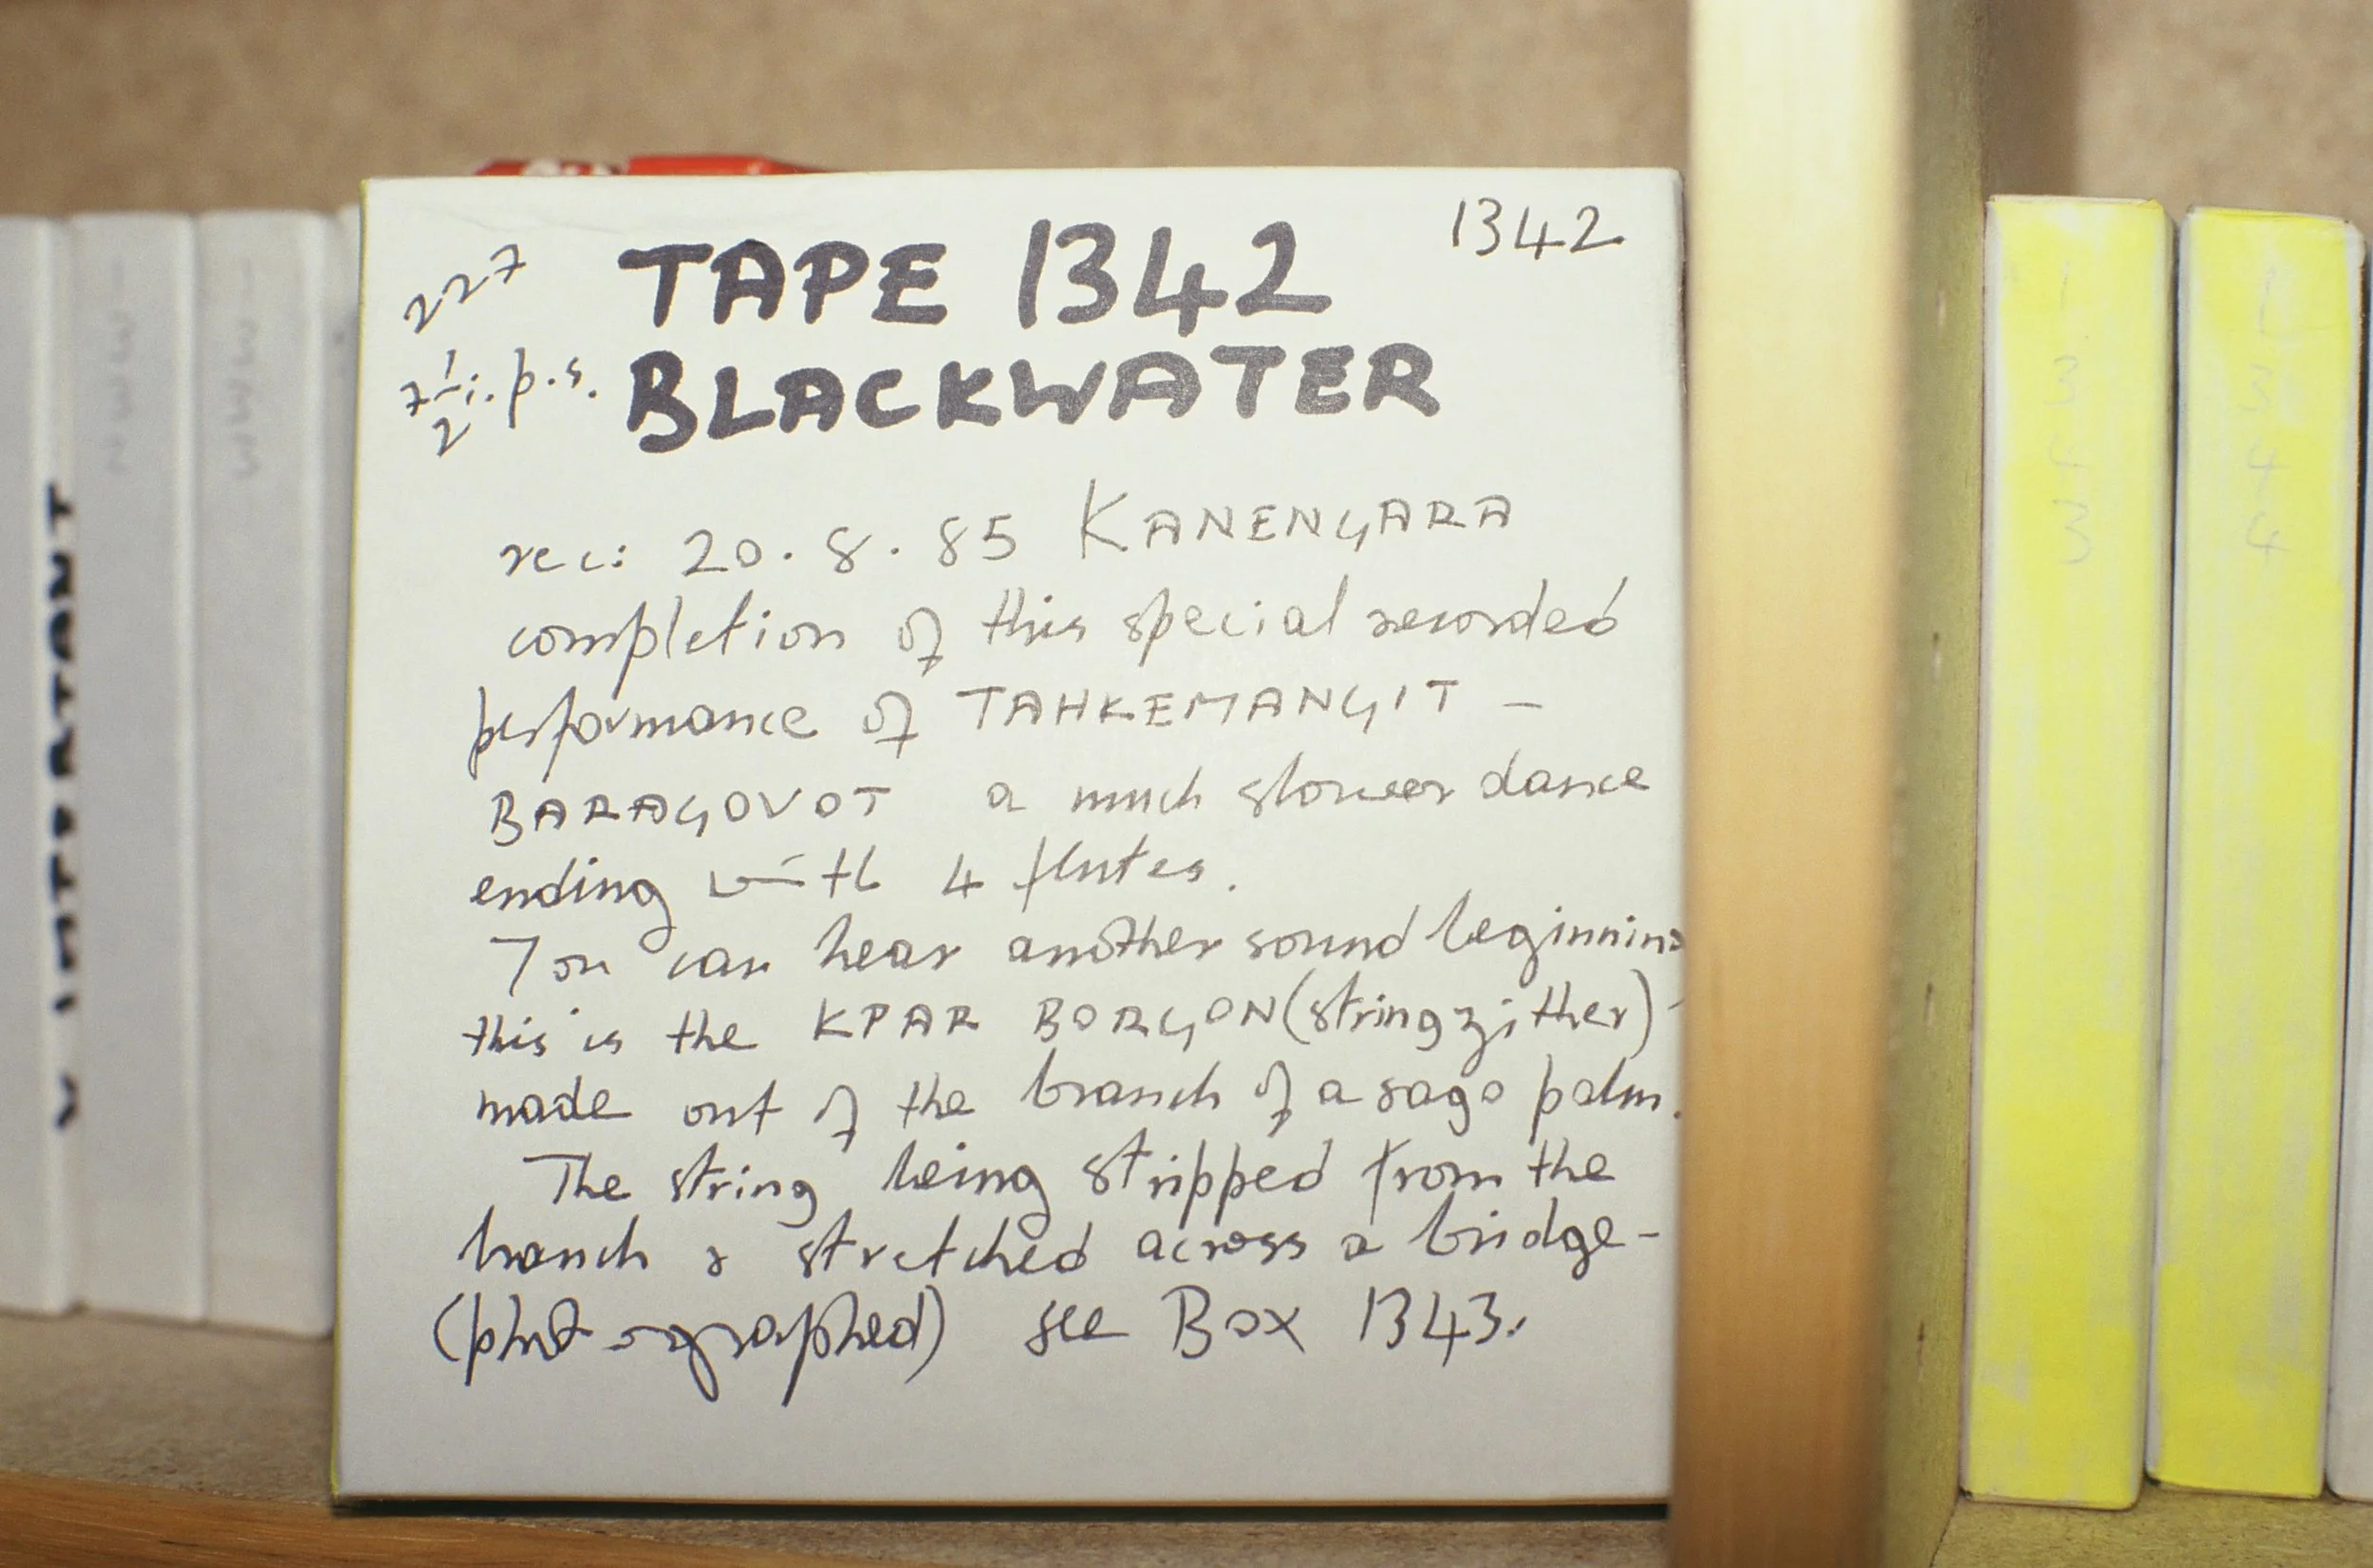 1342
227
7½ i.p.s.
TAPE 1342
BLACKWATER
rec: 20.8.85 KANENGARA
completion of this special recorded
performance of TAHKEMANGIT —
BARAGOVOT a much slower dance
ending with 4 flutes.
You can hear another sound beginning
this is the KPAR BORGON (string zither) -
made out of the branch of a sago palm.
The string being stripped from the
branch & stretched across a bridge -
(photographed) see Box 1343.
IMPORTANT
1343
1344